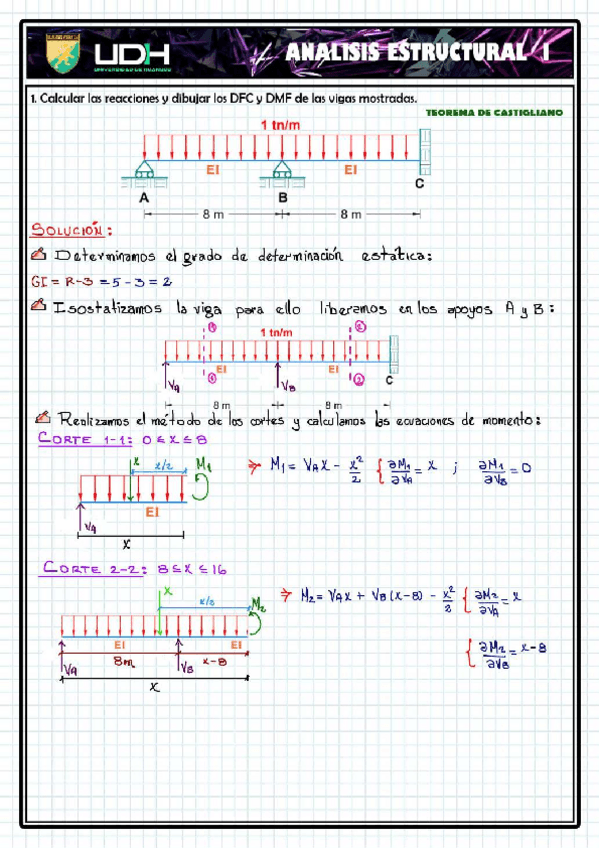 UDH
UNIVERSIDAD DE HUANUCO
ANALISIS ESTRUCTURAL I
1. Calcular las reacciones y dibujar los DFC y DMF de las vigas mostradas.
TEOREMA DE CASTIGLIANO
1 tn/m
EI EI
A B C
8 m 8 m
SOLUCIÓN:
Determinamos el grado de determinación estática:
GI = R-3 = 5-3 = 2
Isostatizamos la viga para ello liberamos en los apoyos A y B:
① ②
1 tn/m
EI EI
VA ① VB ② C
8 m 8 m
Realizamos el método de los cortes y calculamos las ecuaciones de momento:
CORTE 1-1: 0 ≤ x ≤ 8
x x/2 M1
EI
VA
x
M1 = VAx - x²/2 { ∂M1/∂VA = x ; ∂M1/∂VB = 0
CORTE 2-2: 8 ≤ x ≤ 16
x x/2 M2
EI EI
8m x-8
VA VB
x
M2 = VAx + VB(x-8) - x²/2 { ∂M2/∂VA = x
{ ∂M2/∂VB = x-8